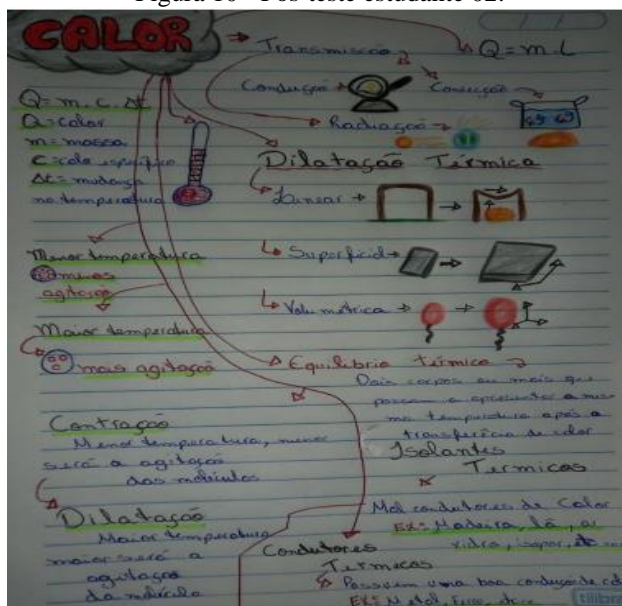 Figura 10 - Pós-teste estudante 02.
CALOR
Transmissão
Q = m.L
Condução
Convecção
Radiação
Q = m.c.Δt
Q = Calor
m = massa
c = calor específico
Δt = mudança
na temperatura
Dilatação Térmica
Linear
Superficial
Volumétrica
Menor temperatura
menos
agitação
Maior temperatura
mais agitação
Equilíbrio térmico
Dois corpos ou mais que
passam a apresentar a mes
ma temperatura após a
transferêcia de calor
Contração
Menor temperatura, menor
será a agitação
das moléculas
Dilatação
Maior temperatura
maior será a
agitação
da molécula
Isolantes
Termicos
Mal condutores de Calor
EX: Madeira, lã, ar
vidro, isopor,
Condutores
Termicos
Possuem uma boa condução de
EX: Metal, Ferro,
tilibra